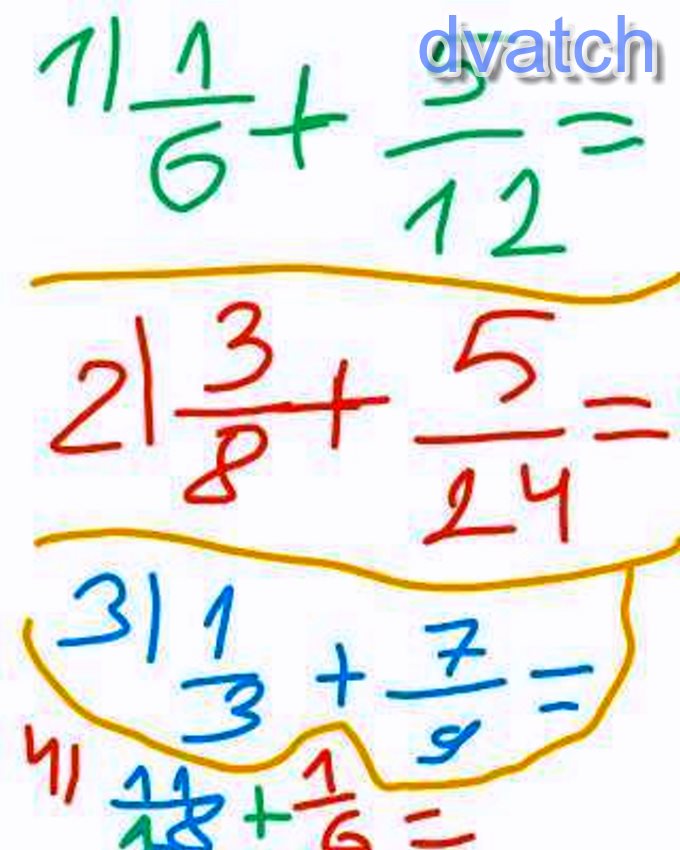 dvatch
1) 1/6 + 5/12 =
2) 3/8 + 5/24 =
3) 1/3 + 7/9 =
4) 11/18 + 1/6 =